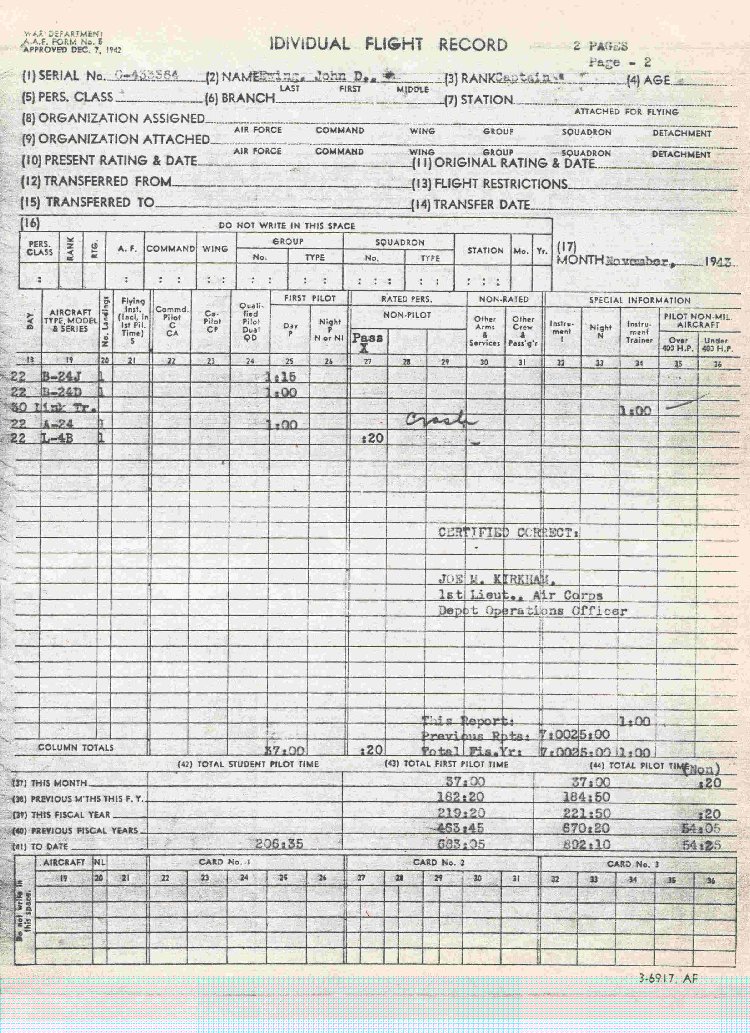 WAR DEPARTMENT
A.A.F. FORM No. 5
APPROVED DEC. 7, 1942
IDIVIDUAL FLIGHT RECORD
2 PAGES
Page - 2
(1) SERIAL No. (2) NAME Ewing, John D., (3) RANK Captain (4) AGE
LAST FIRST MIDDLE
(5) PERS. CLASS (6) BRANCH (7) STATION
ATTACHED FOR FLYING
(8) ORGANIZATION ASSIGNED
AIR FORCE COMMAND WING GROUP SQUADRON DETACHMENT
(9) ORGANIZATION ATTACHED
AIR FORCE COMMAND WING GROUP SQUADRON DETACHMENT
(10) PRESENT RATING & DATE (11) ORIGINAL RATING & DATE
(12) TRANSFERRED FROM (13) FLIGHT RESTRICTIONS
(15) TRANSFERRED TO (14) TRANSFER DATE
(16) DO NOT WRITE IN THIS SPACE
PERS. CLASS RANK RTG. A. F. COMMAND WING GROUP No. TYPE SQUADRON No. TYPE STATION Mo. Yr.
(17) MONTH November, 1943
DAY AIRCRAFT TYPE, MODEL & SERIES No. Landings Flying Inst. (Incl. in 1st Pil. Time) S Commd. Pilot C CA Co-Pilot CP Quali-fied Pilot Dual QD FIRST PILOT Day P Night P N or NI RATED PERS. NON-PILOT Pass X NON-RATED Other Arms & Services Other Crew & Pass'g'r SPECIAL INFORMATION Instru-ment I Night N Instru-ment Trainer PILOT NON-MIL. AIRCRAFT Over 400 H.P. Under 400 H.P.
18 19 20 21 22 23 24 25 26 27 28 29 30 31 32 33 34 35 36
22 B-24J 1 1:15
22 B-24D 1 1:00
30 Link Tr. 1:00
22 A-24 1 1:00 Crash
22 L-4B 1 :20
CERTIFIED CORRECT:
JOE M. KIRKHAM,
1st Lieut., Air Corps
Depot Operations Officer
This Report: 1:00
Previous Rpts: 7:00 25:00
COLUMN TOTALS 37:00 :20 Total Fis.Yr: 7:00 25:00 1:00
(42) TOTAL STUDENT PILOT TIME (43) TOTAL FIRST PILOT TIME (44) TOTAL PILOT TIME (Non)
(37) THIS MONTH 37:00 37:00 :20
(38) PREVIOUS M'THS THIS F. Y. 182:20 184:50
(39) THIS FISCAL YEAR 219:20 221:50 :20
(40) PREVIOUS FISCAL YEARS 463:45 670:20 54:05
(41) TO DATE 206:35 683:05 892:10 54:25
Do not write in this space. AIRCRAFT NL CARD No. 1 CARD No. 2 CARD No. 3
19 20 21 22 23 24 25 26 27 28 29 30 31 32 33 34 35 36
3-6917, AF